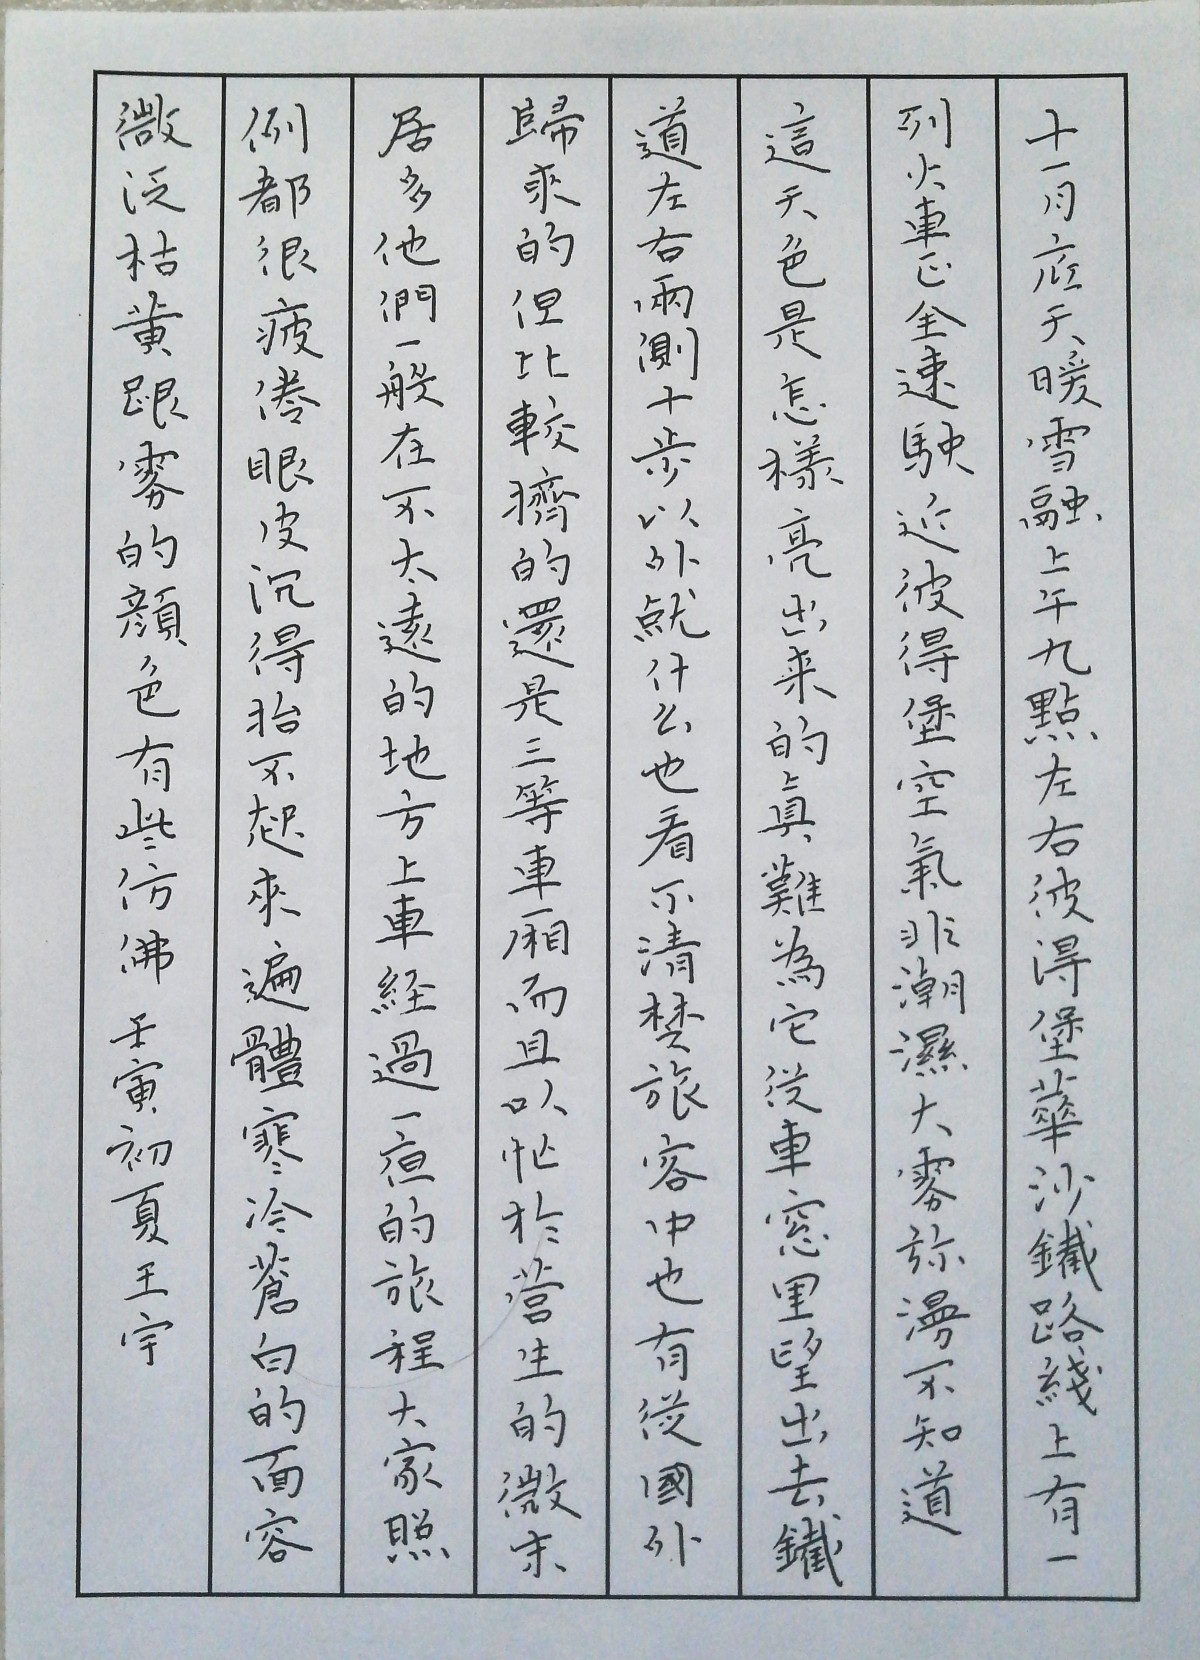 十一月底天暖雪融上午九點左右彼得堡華沙鐵路綫上有一
列火車正全速駛近彼得堡空氣非潮濕大雾弥漫不知道
這天色是怎樣亮出来的真難為它從車窓里望出去鐵
道左右兩側十步以外就什么也看不清楚旅客中也有從國外
歸來的但比較擠的還是三等車厢而且以忙於营生的微末
居多他們一般在不太遠的地方上車経過一夜的旅程大家照
例都很疲倦眼皮沉得抬不起來遍體寒冷蒼白的面容
微泛枯黄跟雾的顔色有些仿佛 壬寅初夏王宇